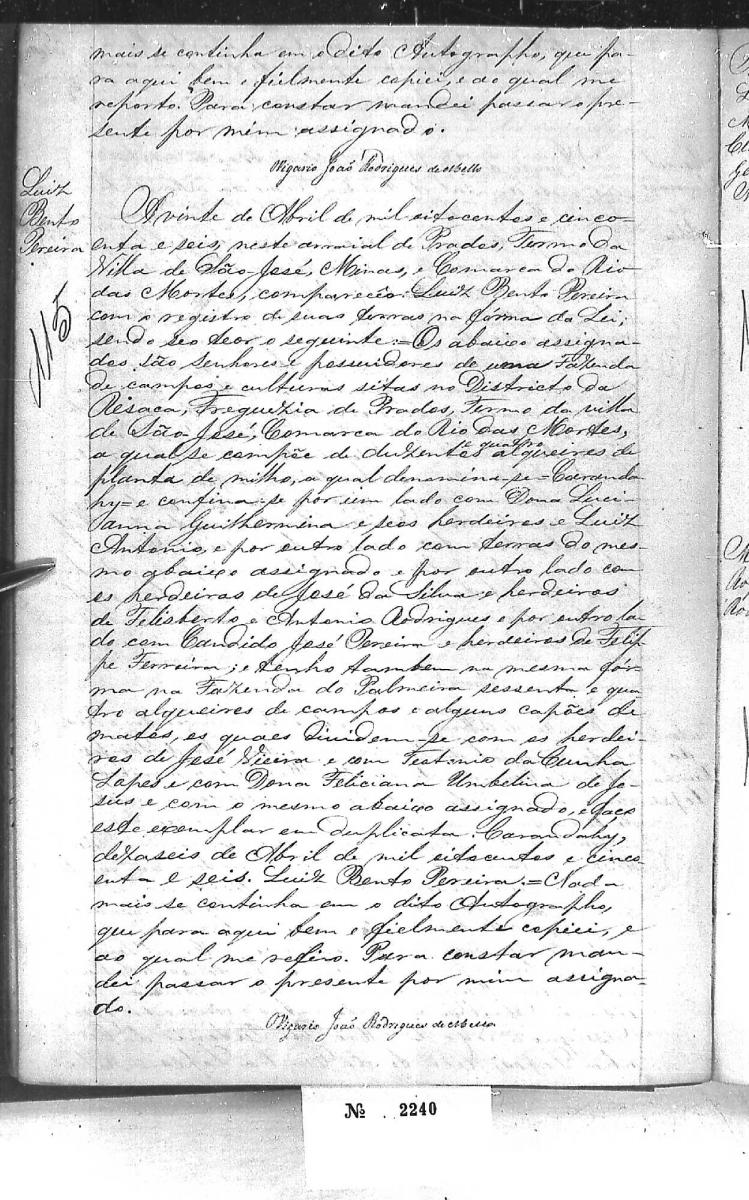 mais se continha em o dito Autographo, que pa-
ra aqui bem e fielmente copiei, e ao qual me
reporto. Para constar mandei passar o pre-
sente por mim assignado.
Vigario João Rodrigues de Mello
Luiz
Bento
Pereira
115
A vinte de Abril de mil oitocentos e cinco-
enta e seis, neste arraial de Prados, Termo da
Villa de São José, Minas, e Comarca do Rio
das Mortes, compareceo: Luiz Bento Pereira
com o registro de suas terras na fórma da Lei;
sendo seo teor o seguinte:= Os abaixo assigna-
dos são senhores e possuidores de uma Fazenda
de campos e culturas sitas no Districto da
Resaca, Freguezia de Prados, Termo da villa
de São José, Comarca do Rio das Mortes,
a qual se compõe de duzentos e quatro alqueires de
planta de milho, a qual denomina-se =Caranda-
hy= e confina-se por um lado com Dona Luci-
anna Guilhermina e seos herdeiros e Luiz
Antonio, e por outro lado com terras do mes-
mo abaixo assignado e por outro lado com
os herdeiros de José da Silva e herdeiros
de Felisberto e Antonio Rodrigues e por outro la-
do com Candido José Pereira e herdeiros de Felip-
pe Ferreira; e tenho tambem na mesma fór-
ma na Fazenda do Palmeira sessenta e qua-
tro alqueires de campos e alguns capões de
matos, os quaes dividem-se com os herdei-
ros de José Vieira e com Teotonio da Cunha
Lopes e com Dona Feliciana Umbelina de Je-
sus e com o mesmo abaixo assignado, e faço
este exemplar em duplicata. Carandahy,
dezaseis de Abril de mil oitocentos e cinco-
enta e seis. Luiz Bento Pereira.= Nada
mais se continha em o dito Autographo,
que para aqui bem e fielmente copiei, e
ao qual me refiro. Para constar man-
dei passar o presente por mim assigna-
do.
Vigario João Rodrigues de Mello
Nº 2240